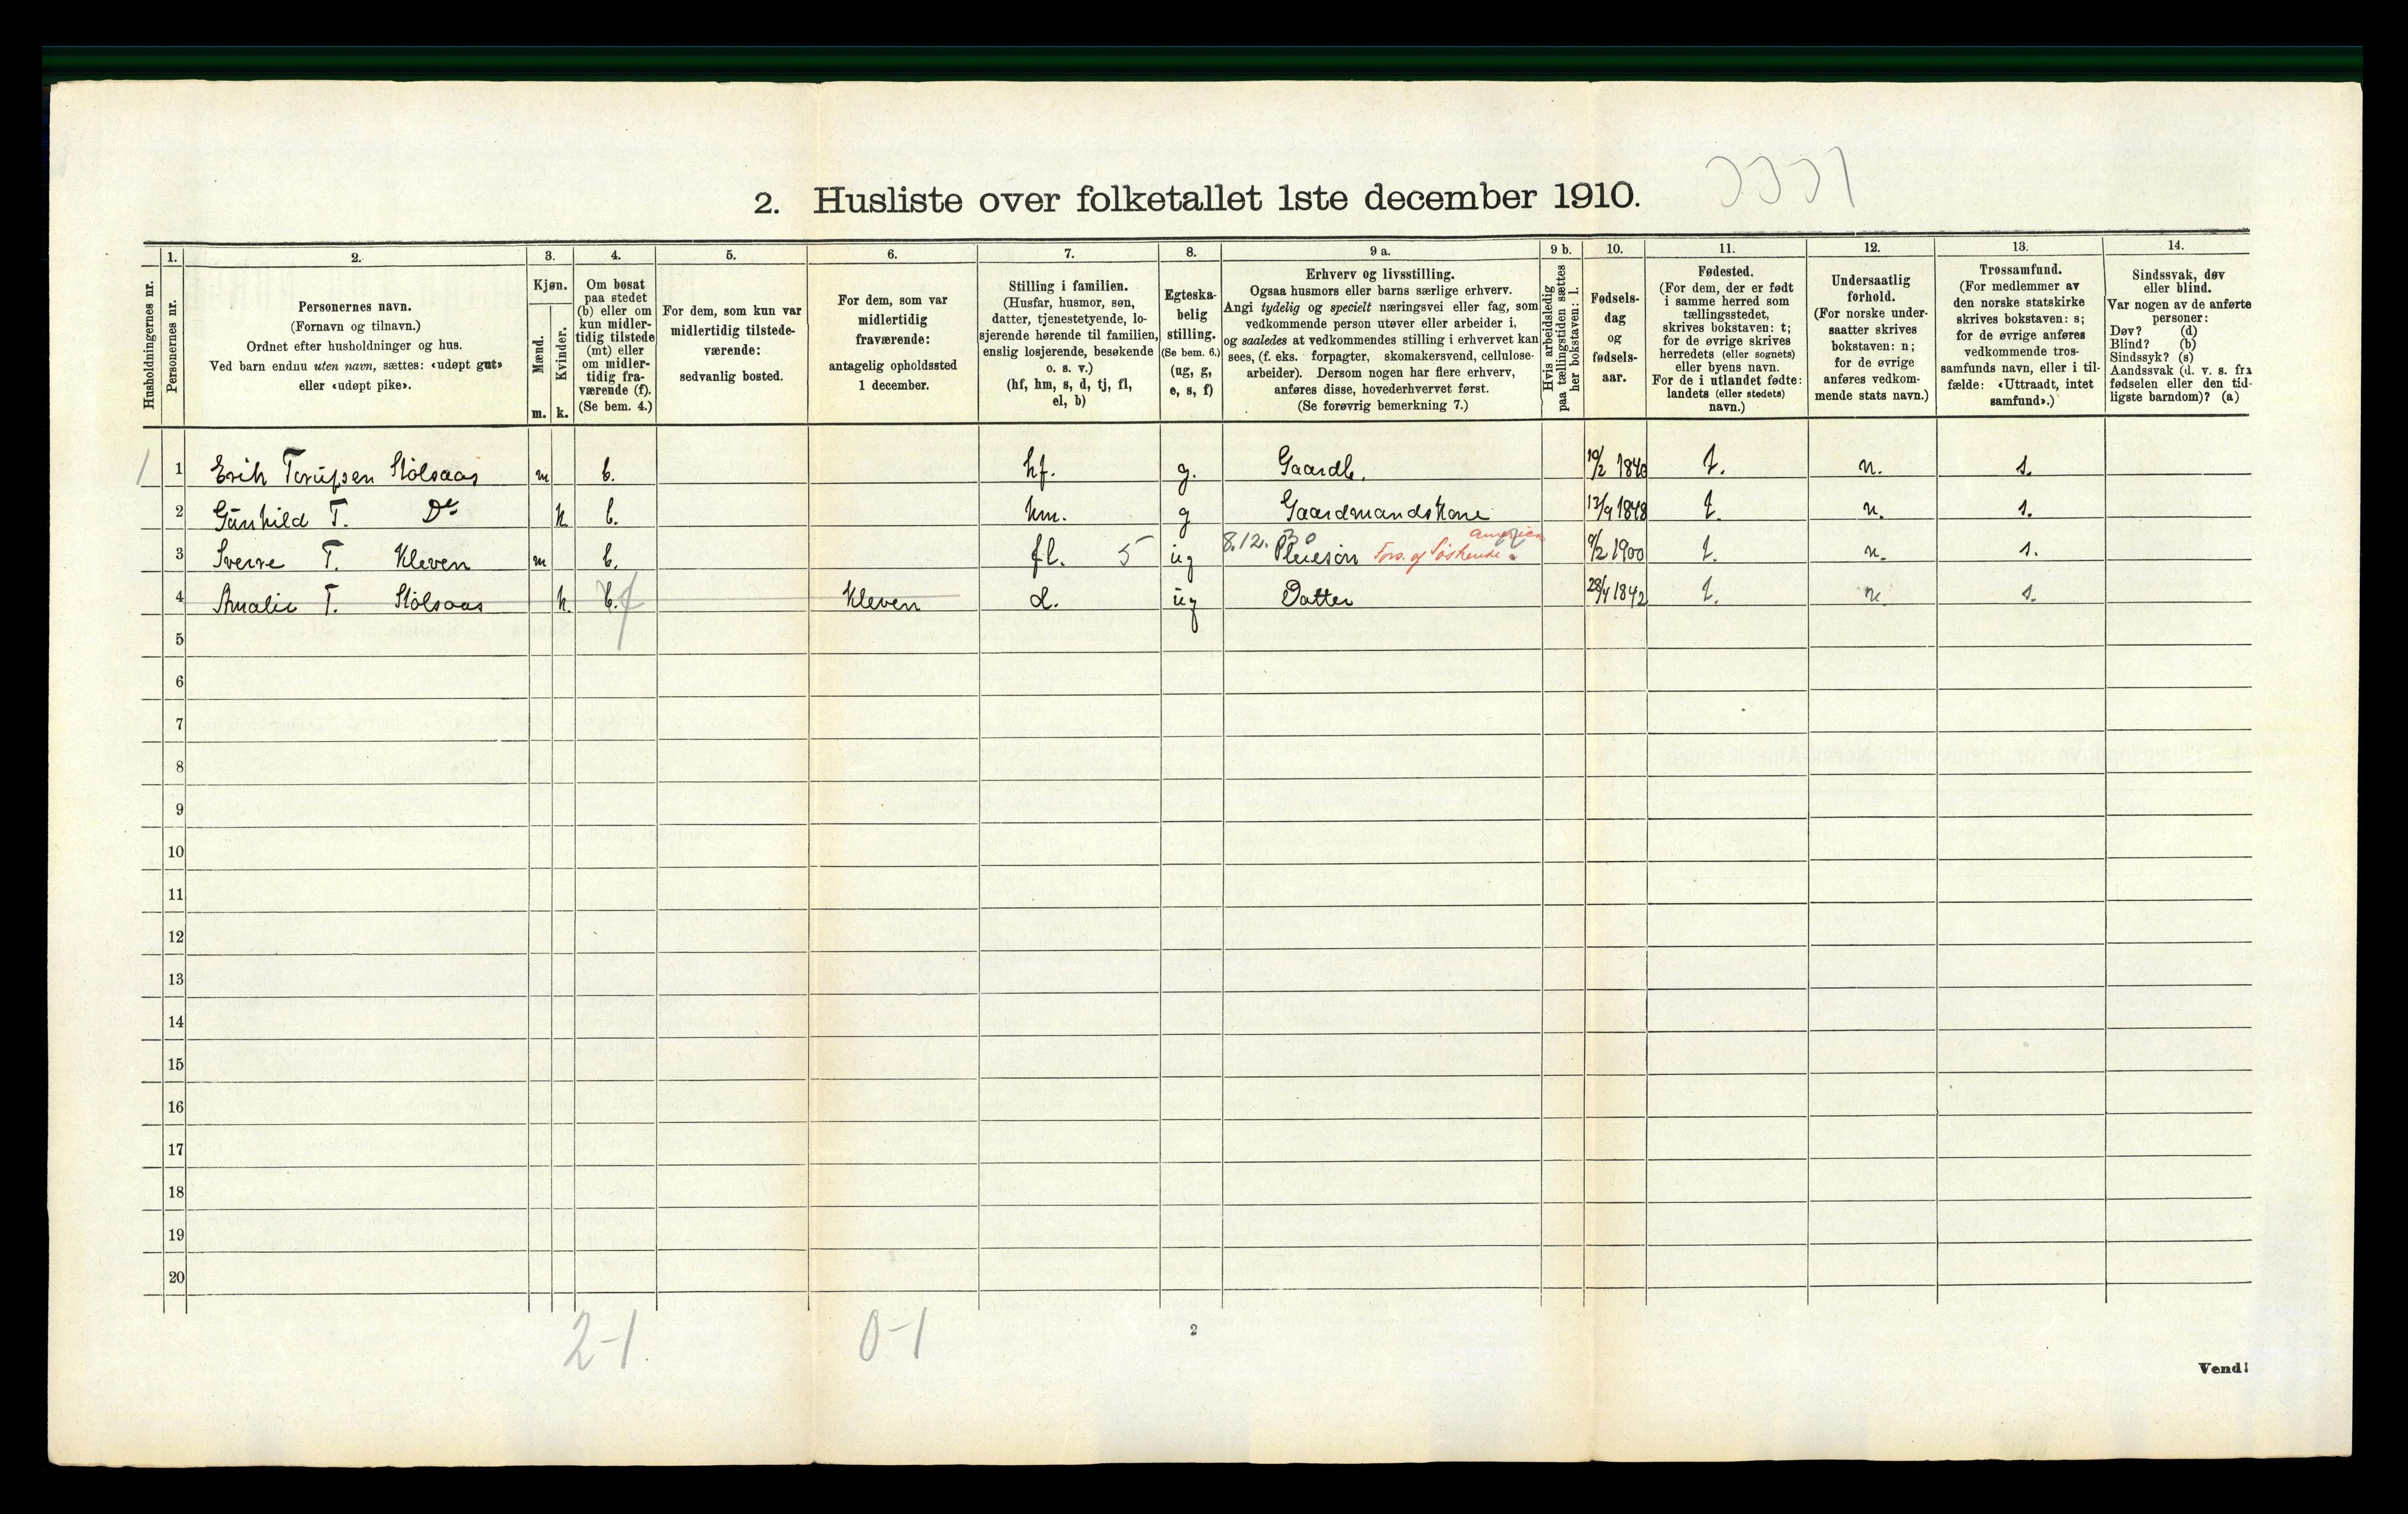 2. Husliste over folketallet 1ste december 1910.
Husholdningernes nr.
1.
Personernes nr.
2.
Personernes navn.
(Fornavn og tilnavn.)
Ordnet efter husholdninger og hus.
Ved barn endnu uten navn, sættes: «udøpt gut»
eller «udøpt pike».
3.
Kjøn.
Mænd.
m.
Kvinder.
k.
4.
Om bosat
paa stedet
(b) eller om
kun midler-
tidig tilstede
(mt) eller
om midler-
tidig fra-
værende (f).
(Se bem. 4.)
5.
For dem, som kun var
midlertidig tilstede-
værende:
sedvanlig bosted.
6.
For dem, som var
midlertidig
fraværende:
antagelig opholdssted
1 december.
7.
Stilling i familien.
(Husfar, husmor, søn,
datter, tjenestetyende, lo-
sjerende hørende til familien,
enslig losjerende, besøkende
o. s. v.)
(hf, hm, s, d, tj, fl,
el, b)
8.
Egteska-
belig
stilling.
(Se bem. 6.)
(ug, g,
e, s, f)
9 a.
Erhverv og livsstilling.
Ogsaa husmors eller barns særlige erhverv.
Angi tydelig og specielt næringsvei eller fag, som
vedkommende person utøver eller arbeider i,
og saaledes at vedkommendes stilling i erhvervet kan
sees, (f. eks. forpagter, skomakersvend, cellulose-
arbeider). Dersom nogen har flere erhverv,
anføres disse, hovederhvervet først.
(Se forøvrig bemerkning 7.)
9 b.
Hvis arbeidsledig
paa tællingstiden sættes
her bokstaven: l.
10.
Fødsels-
dag
og
fødsels-
aar.
11.
Fødested.
(For dem, der er født
i samme herred som
tællingsstedet,
skrives bokstaven: t;
for de øvrige skrives
herredets (eller sognets)
eller byens navn.
For de i utlandet fødte:
landets (eller stedets)
navn.)
12.
Undersaatlig
forhold.
(For norske under-
saatter skrives
bokstaven: n;
for de øvrige
anføres vedkom-
mende stats navn.)
13.
Trossamfund.
(For medlemmer av
den norske statskirke
skrives bokstaven: s;
for de øvrige anføres
vedkommende tros-
samfunds navn, eller i til-
fælde: «Uttraadt, intet
samfund».)
14.
Sindssvak, døv
eller blind.
Var nogen av de anførte
personer:
Døv? (d)
Blind? (b)
Sindssyk? (s)
Aandssvak (d. v. s. fra
fødselen eller den tid-
ligste barndom)? (a)
1 1 Erik Torupsen Stölsaas m b. hf. g. Gaardb. 10/2 1840 t. n. s.
2 Gunhild T. Do k b. hm. g Gaardmandskone 13/9 1848 t. n. s.
america
8.12.
3 Sverre T. Kleven m b. fl. 5 ug Pleiesön 9/2 1900 t. n. s.
4 Amalie T. Stölsaas k. b. f Kleven d. ug Datter 28/4 1842 t. n. s.
5
6
7
8
9
10
11
12
13
14
15
16
17
18
19
20
2-1 0-1
2
Vend!